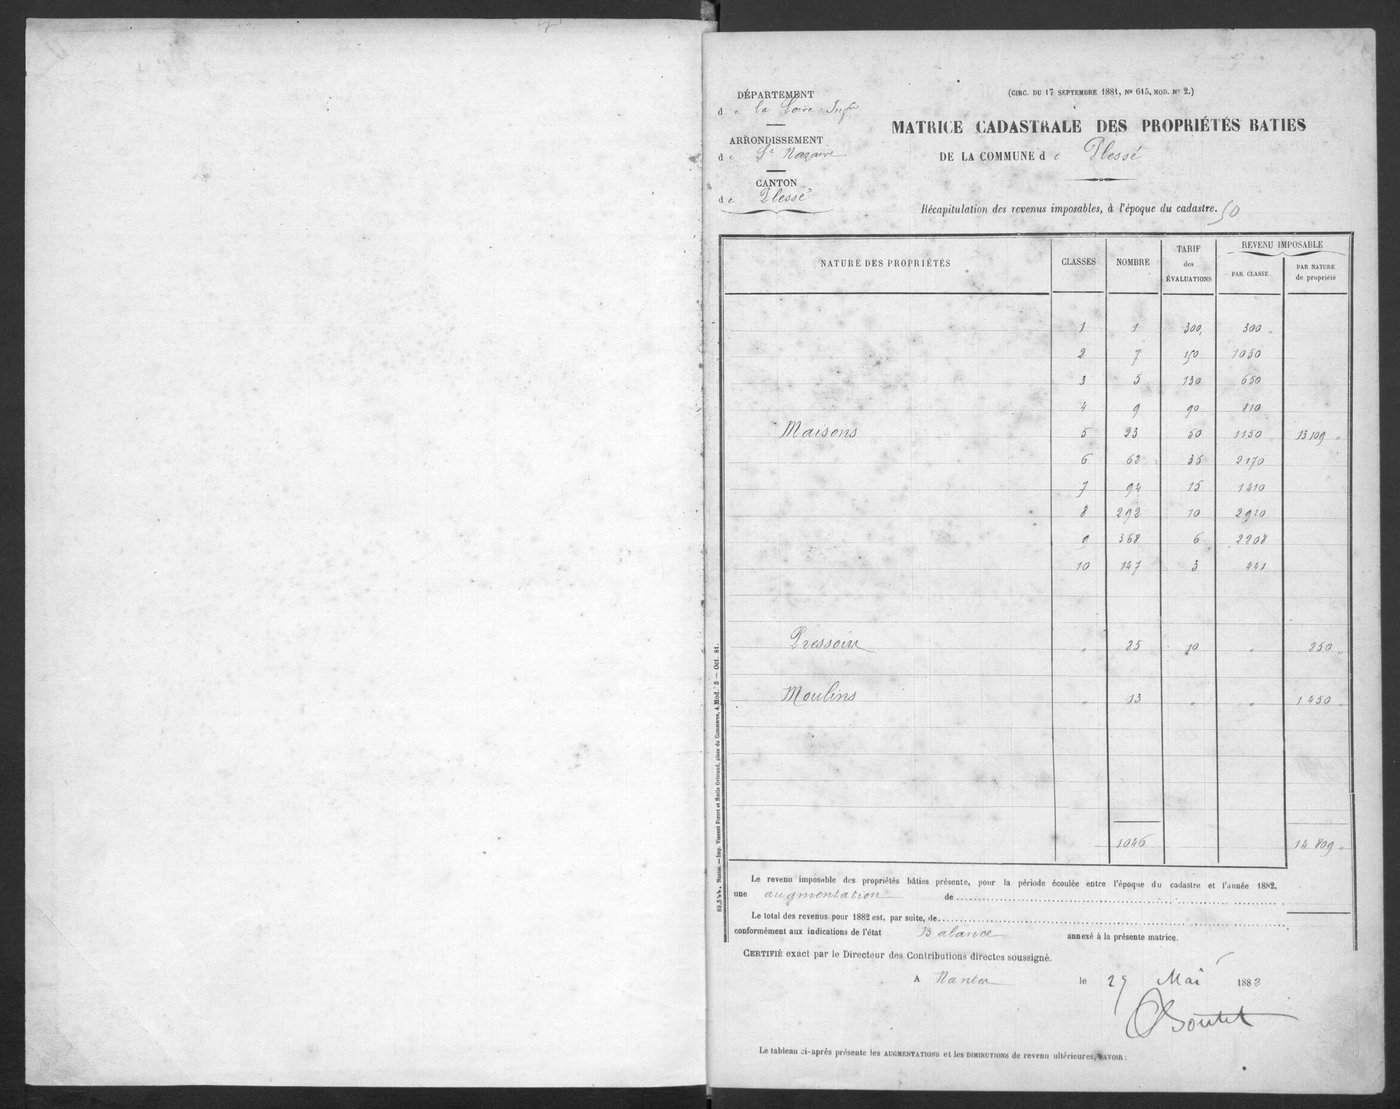 DÉPARTEMENT
de la Loire-Infre
ARRONDISSEMENT
de St Nazaire
CANTON
de Plessé
(CIRC. DU 17 SEPTEMBRE 1881, No 615, MOD. No 2.)
MATRICE CADASTRALE DES PROPRIÉTÉS BATIES
DE LA COMMUNE de Plessé
Récapitulation des revenus imposables, à l'époque du cadastre. 50
NATURE DES PROPRIÉTÉS CLASSES NOMBRE TARIF des ÉVALUATIONS REVENU IMPOSABLE
PAR CLASSE PAR NATURE de propriété
1 1 300 300 "
2 7 150 1050
3 5 130 650
4 9 90 810
Maisons 5 23 50 1150 13109 "
6 62 35 2170
7 94 15 1410
8 292 10 2920
9 368 6 2208
10 147 3 441
Pressoir " 25 10 " 250 "
Moulins " 13 " " 1450 "
1046 14809 "
Le revenu imposable des propriétés bâties présente, pour la période écoulée entre l'époque du cadastre et l'année 1882,
une augmentation de
Le total des revenus pour 1882 est, par suite, de
conformément aux indications de l'état Balance annexé à la présente matrice.
CERTIFIÉ exact par le Directeur des Contributions directes soussigné.
A Nantes le 29 Mai 1883
Boutet
Le tableau ci-après présente les AUGMENTATIONS et les DIMINUTIONS de revenu ultérieures, SAVOIR :
Nantes. — Imp. Vincent Forest et Émile Grimaud, place du Commerce, 4. Mod. 5 — Oct. 81.